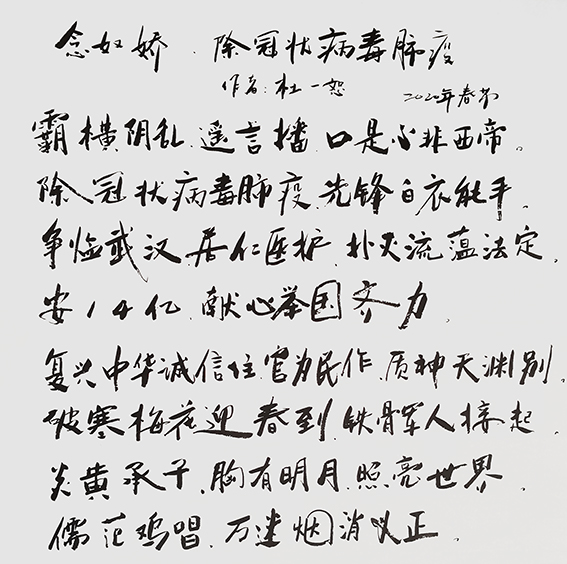 念奴娇 . 除冠状病毒肺疫
作者:杜一恕
2020年春节
霸横阴乱.遥言播.口是心非西帝.
除冠状病毒肺疫.先锋白衣能手.
争临武汉.居仁医护.扑火流蕴法定.
安14亿.献心举国齐力.
复兴中华诚信佳.官为民作.质神天渊别.
破寒梅花迎春到.铁骨军人接起.
炎黄承干.胸有明月.照亮世界.
儒范鸡唱.万迷烟消义正.